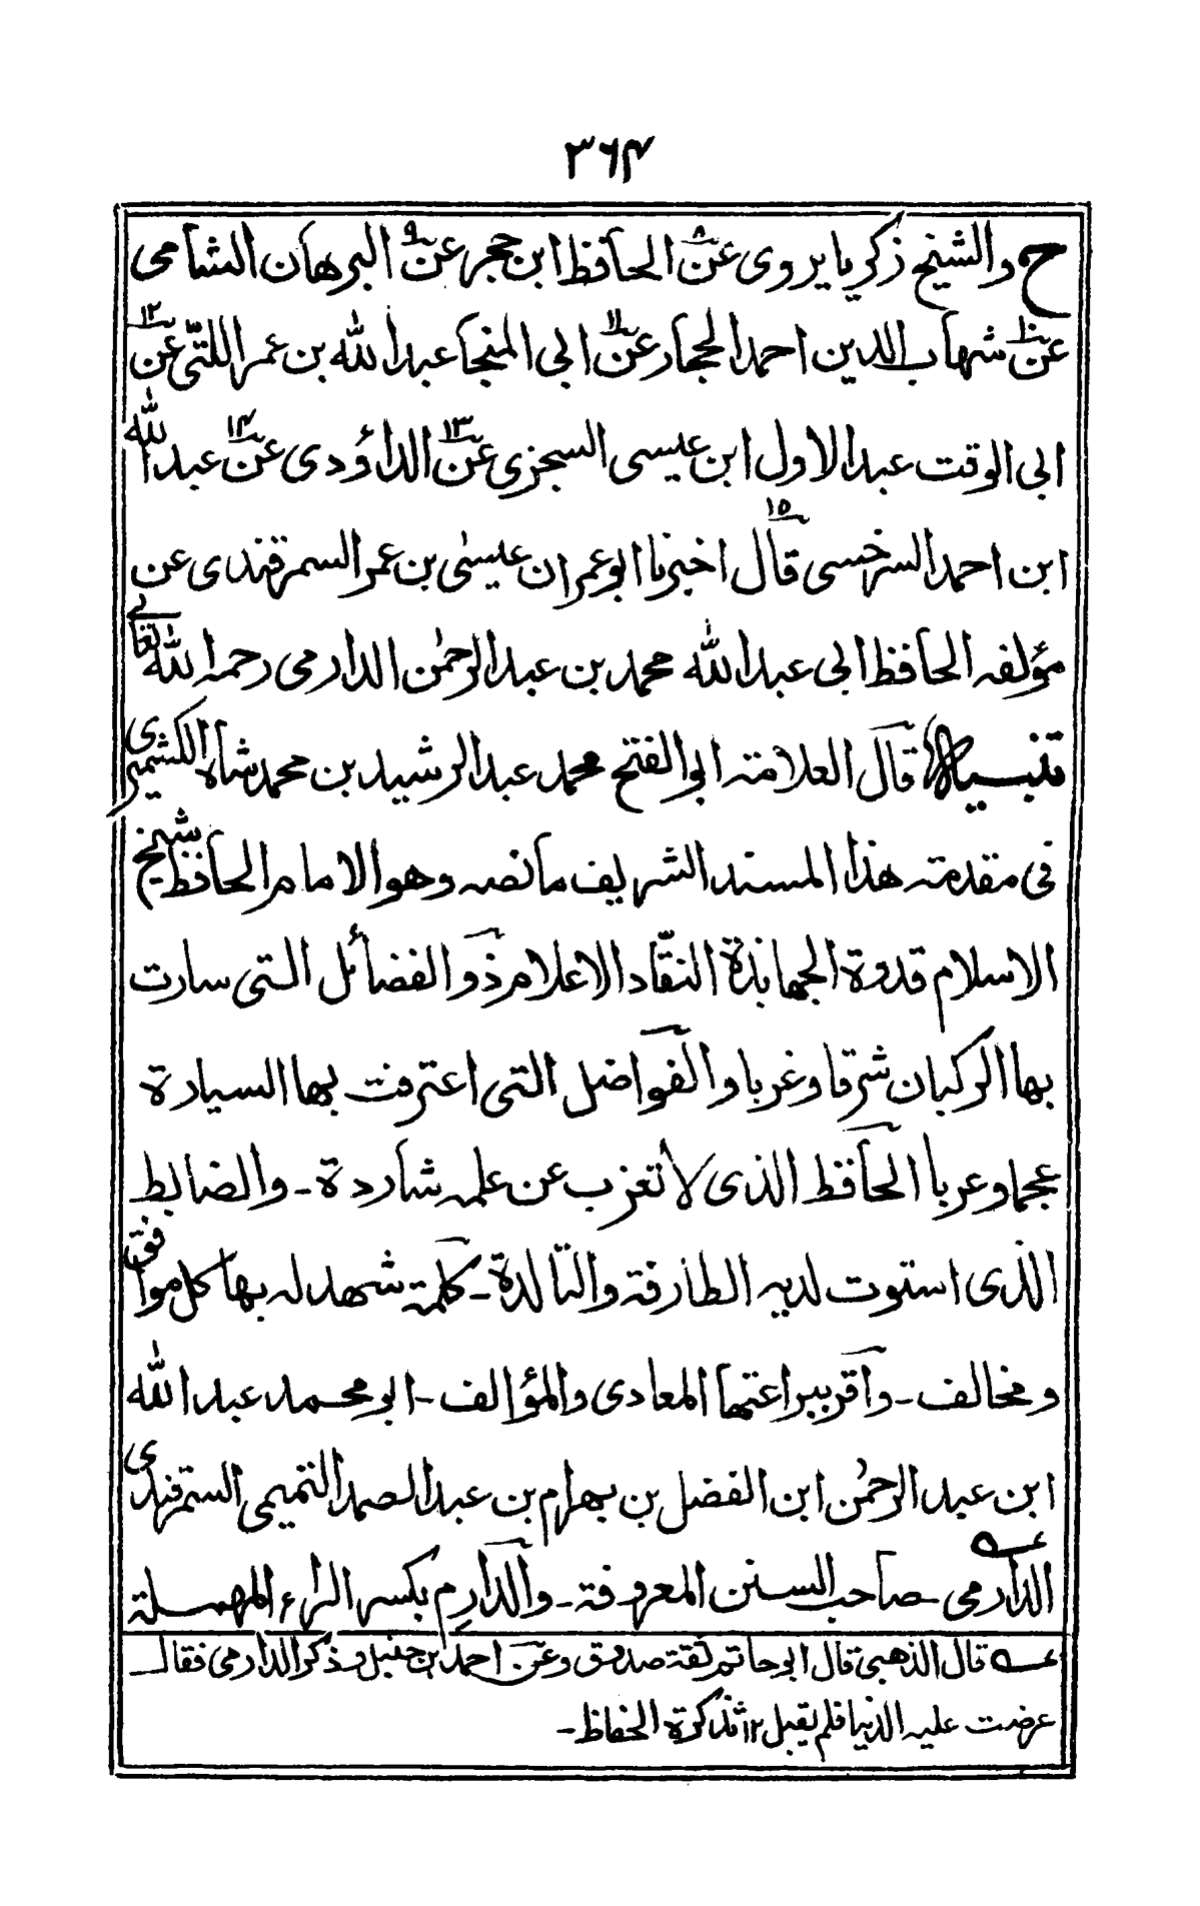 ٣٦٤
ح والشيخ زكريا يروى عن٨ الحافظ ابن حجر عن٩ البرهان الشامى
عن١٠ شهاب الدين احمد الحجار عن١١ ابى المنجا عبد الله بن عمر اللتّى عن١٢
ابى الوقت عبد الاول ابن عيسى السجزى عن١٣ الداؤدى عن١٤ عبد الله
ابن احمد السرخسى قال١٥ اخبرنا ابو عمران عيسىٰ بن عمر السمرقندى عن
مؤلفه الحافظ ابى عبد الله محمد بن عبد الرحمٰن الدارمى رحمه الله تعالى
تنبيه) قال العلامة ابو الفتح محمد عبد الرشيد بن محمد شاه الكشميرى
فى مقدمة هذا المسند الشريف ما نصه وهو الامام الحافظ شيخ
الاسلام قدوة الجهابذة النقّاد الاعلام ذو الفضائل التى سارت
بها الركبان شرقا وغربا والفواضل التى اعترفت بها السيارة
عجما وعربا الحافظ الذى لا تعزب عن علمه شاردة - والضابط
الذى استوت لديه الطارفة والتالدة - كلمة شهد له بها كل موافق
ومخالف - واقر ببراعتها المعادى والمؤالف - ابو محمد عبد الله
ابن عبد الرحمٰن ابن الفضل بن بهرام بن عبد الصمد التميمى السمرقندى
الدارمى عــه - صاحب السنن المعروفة - والدارم بكسر الراء المهملة
عــه قال الذهبى قال ابو حاتم ثقة صدوق وعن احمد بن حنبل وذكر الدارمى فقال
عرضت عليه الدنيا فلم يقبل ١٢ تذكرة الحفاظ -